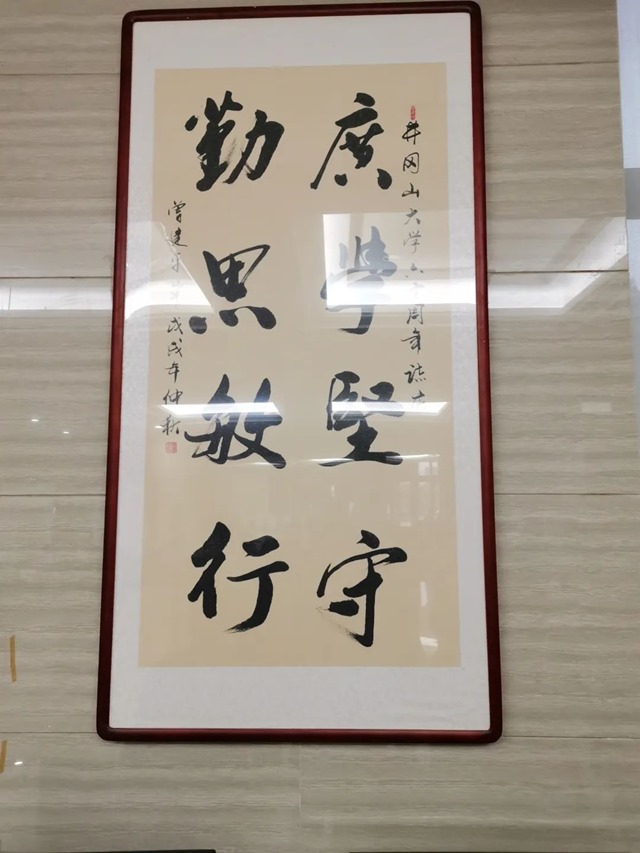 井冈山大学六十周年誌庆
廣學堅守
勤思敏行
曾建平 戊戌年仲秋